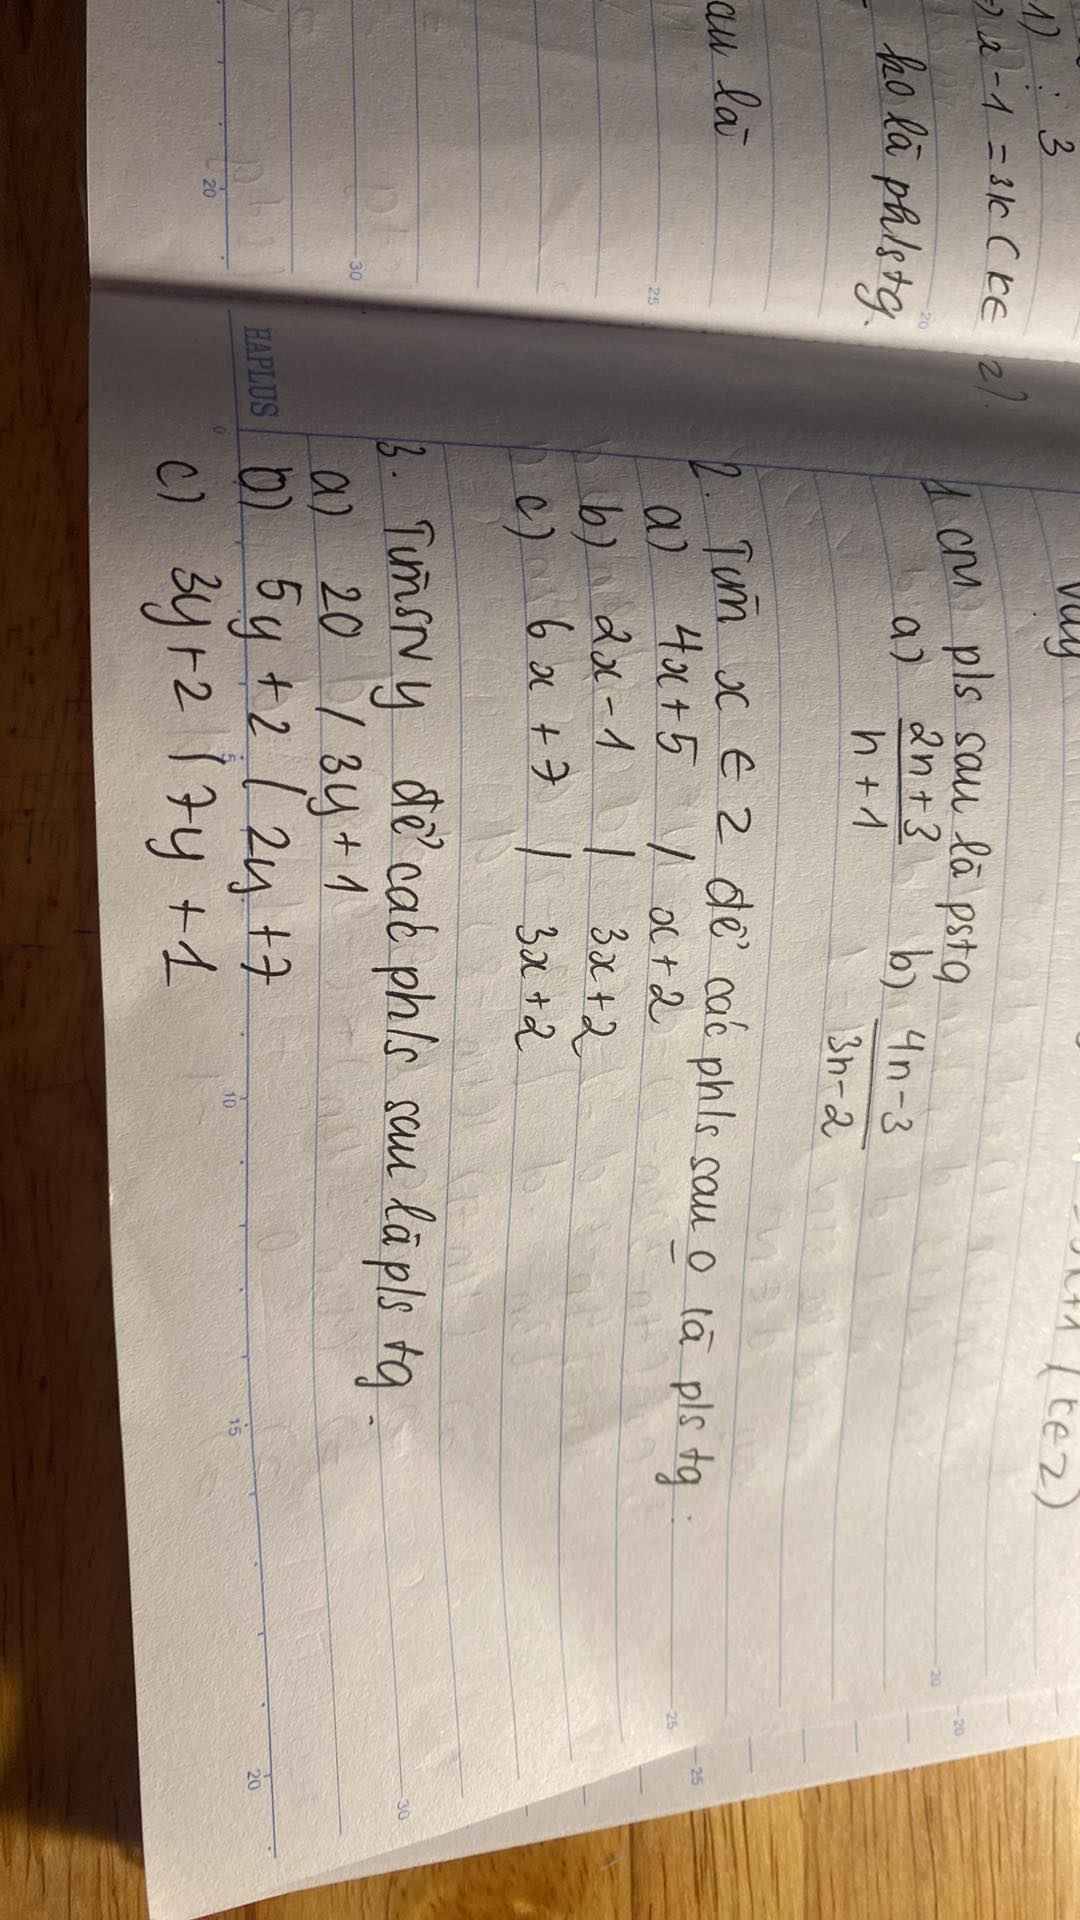 1)
⋮ 3
=) x - 1 = 3k (k ∈ Z).
ko là ph/s tg.
au là
20
25
30
20
Vậy
3k+1 (k∈Z)
1 CM p/s sau là pstg
a) 2n+3 / n+1 b) 4n-3 / 3n-2
2. Tìm x ∈ Z để các ph/s sau o là p/s tg:
a) 4x+5 / x+2
b) 2x-1 / 3x+2
c) 6x+7 / 3x+2
3. Tìm sN y để các ph/s sau là p/s tg.
a) 20 / 3y+1
b) 5y+2 / 2y+7
c) 3y+2 / 7y+1
HAPLUS
0
5
10
15
20
20
20
25
25
30